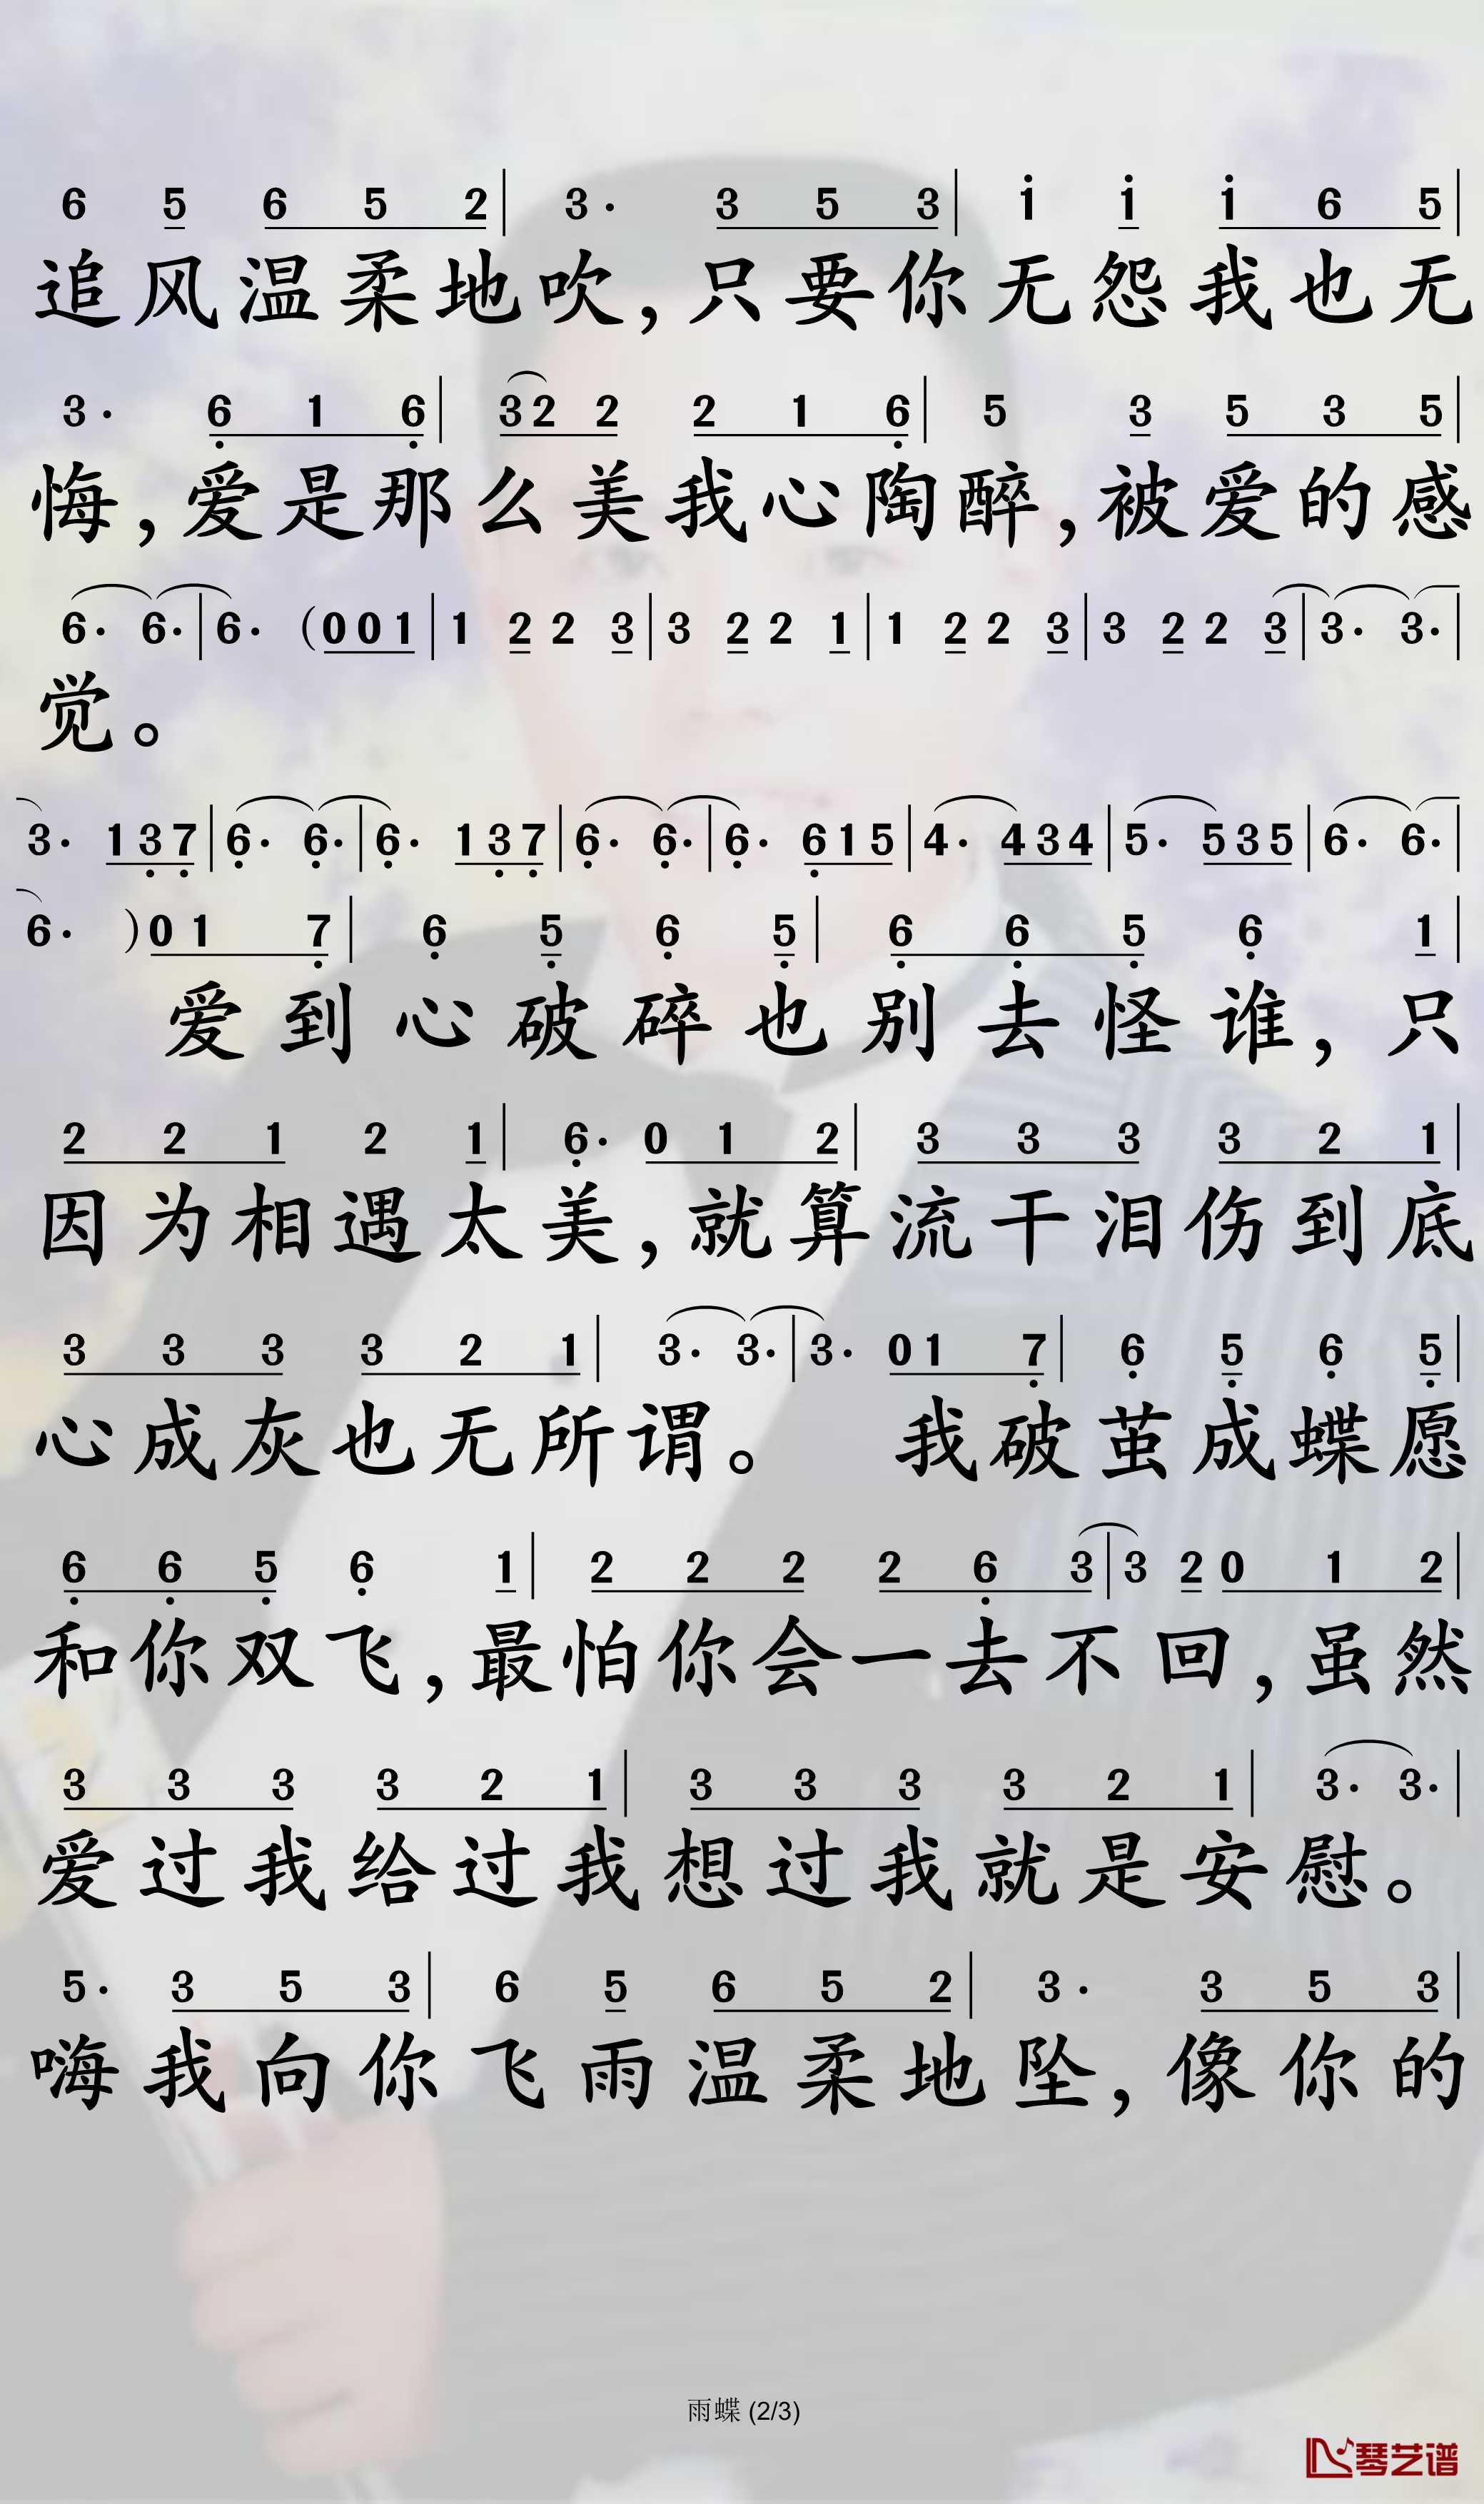 6 5 6 5 2 | 3· 3 5 3 | i i i 6 5 |
追风温柔地吹，只要你无怨我也无
3· 6̣ 1 6̣ | 3 2 2 2 1 6̣ | 5 3 5 3 5 |
悔，爱是那么美我心陶醉，被爱的感
6· 6· | 6· (0 0 1 | 1 2 2 3 | 3 2 2 1 | 1 2 2 3 | 3 2 2 3 | 3· 3· |
觉。
3· 1 3̣ 7̣ | 6̣· 6̣· | 6̣· 1 3̣ 7̣ | 6̣· 6̣· | 6̣· 6̣ 1 5 | 4· 4 3 4 | 5· 5 3 5 | 6· 6· |
6· ) 0 1 7̣ | 6̣ 5̣ 6̣ 5̣ | 6̣ 6̣ 5̣ 6̣ 1 |
爱到心破碎也别去怪谁，只
2 2 1 2 1 | 6̣· 0 1 2 | 3 3 3 3 2 1 |
因为相遇太美，就算流干泪伤到底
3 3 3 3 2 1 | 3· 3· | 3· 0 1 7̣ | 6̣ 5̣ 6̣ 5̣ |
心成灰也无所谓。 我破茧成蝶愿
6̣ 6̣ 5̣ 6̣ 1 | 2 2 2 2 6̣ 3 | 3 2 0 1 2 |
和你双飞，最怕你会一去不回，虽然
3 3 3 3 2 1 | 3 3 3 3 2 1 | 3· 3· |
爱过我给过我想过我就是安慰。
5· 3 5 3 | 6 5 6 5 2 | 3· 3 5 3 |
嗨我向你飞雨温柔地坠，像你的
雨蝶 (2/3)
琴艺谱